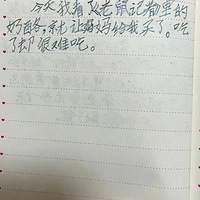 今天我看了《老鼠记者》里的
奶酪,就让妈妈给我买了。吃
了却很难吃。